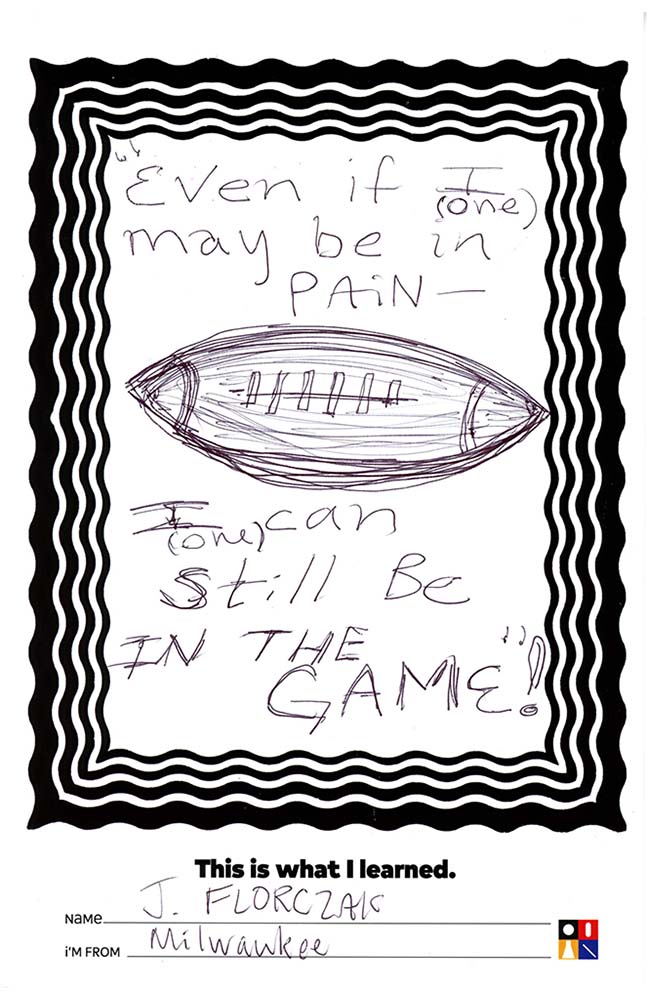 "Even if I
(one)
may be in
PAiN—
I can
(one)
Still Be
IN THE
GAME"!
This is what I learned.
NaMe J. FLORCZAK
i'M FROM Milwaukee